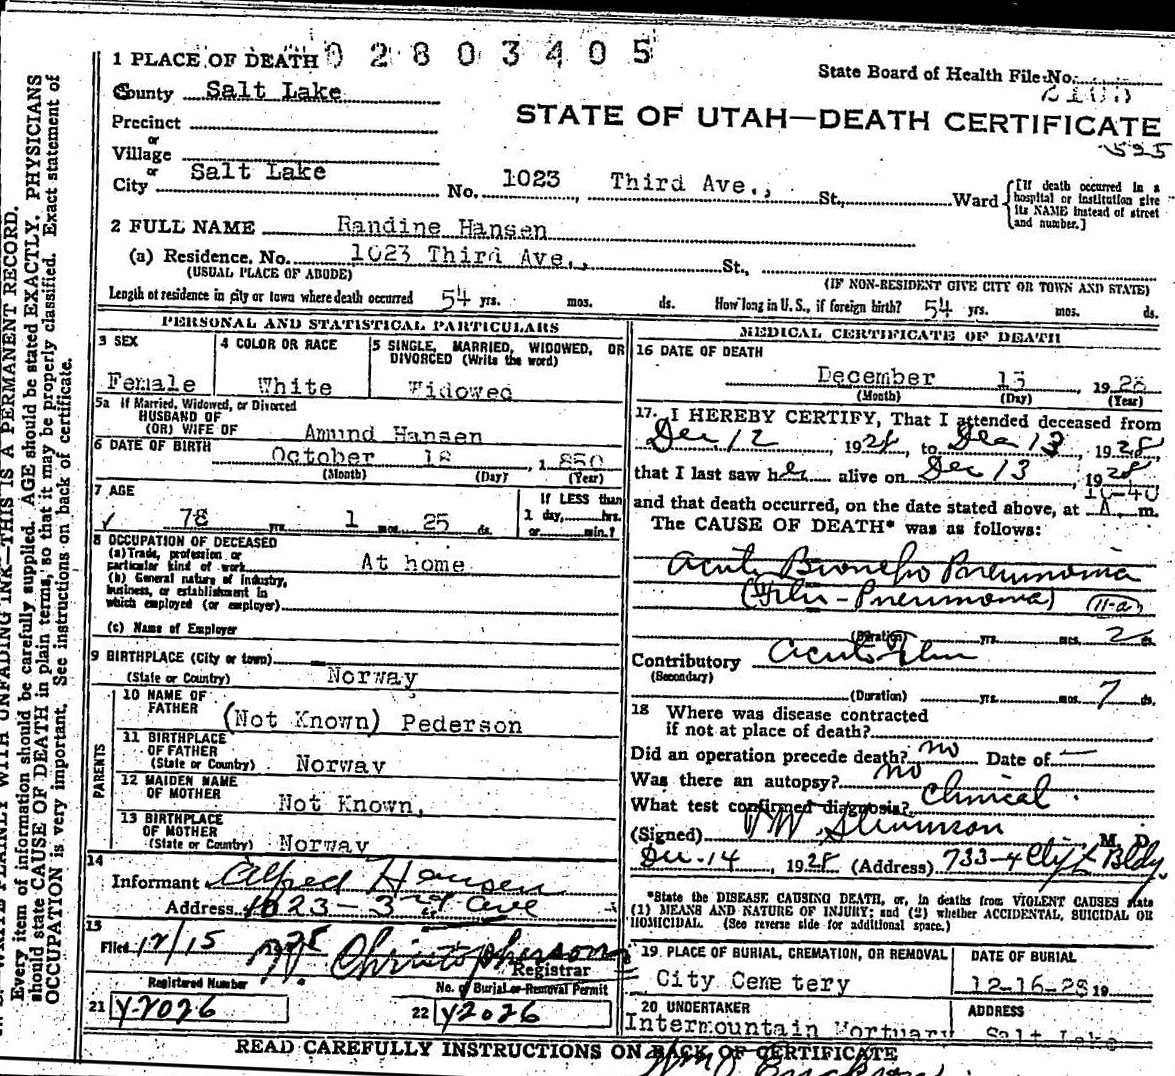 1 PLACE OF DEATH 02803405
State Board of Health File No.
County Salt Lake
STATE OF UTAH—DEATH CERTIFICATE
Precinct
or
Village
or
City Salt Lake No. 1023 Third Ave., St., Ward
[If death occurred in a hospital or institution give its NAME instead of street and number.]
2 FULL NAME Randine Hansen
(a) Residence, No. 1023 Third Ave., St.,
(USUAL PLACE OF ABODE) (IF NON-RESIDENT GIVE CITY OR TOWN AND STATE)
Length of residence in city or town where death occurred 54 yrs. mos. ds. How long in U. S., if foreign birth? 54 yrs. mos. ds.
PERSONAL AND STATISTICAL PARTICULARS
3 SEX
Female
4 COLOR OR RACE
White
5 SINGLE, MARRIED, WIDOWED, OR DIVORCED (Write the word)
Widowed
5a If Married, Widowed, or Divorced
HUSBAND OF
(OR) WIFE OF Amund Hansen
6 DATE OF BIRTH October 18, 1850
(Month) (Day) (Year)
7 AGE
78 yrs. 1 mos. 25 ds.
If LESS than
1 day, hrs.
or min.?
8 OCCUPATION OF DECEASED
(a) Trade, profession or
particular kind of work At home
(b) General nature of industry,
business, or establishment in
which employed (or employer)
(c) Name of Employer
9 BIRTHPLACE (City or town)
(State or Country) Norway
PARENTS
10 NAME OF
FATHER (Not Known) Pederson
11 BIRTHPLACE
OF FATHER
(State or Country) Norway
12 MAIDEN NAME
OF MOTHER Not Known,
13 BIRTHPLACE
OF MOTHER
(State or Country) Norway
14
Informant Alfred Hansen
Address 1023 - 3rd Ave
15
Filed 12/15 1928 Christopherson
Registrar
Registered Number
No. of Burial or Removal Permit
21 Y-2026
22 Y2026
MEDICAL CERTIFICATE OF DEATH
16 DATE OF DEATH
December 13, 1928
(Month) (Day) (Year)
17. I HEREBY CERTIFY, That I attended deceased from
Dec 12, 1928, to Dec 13, 1928,
that I last saw her alive on Dec 13, 1928
and that death occurred, on the date stated above, at 10-40 A. m.
The CAUSE OF DEATH* was as follows:
Acute Broncho Pneumonia
(Flu-Pneumonia) (11-a)
(Duration) yrs. mos. 2 ds.
Contributory Acute Flu
(Secondary)
(Duration) yrs. mos. 7 ds.
18 Where was disease contracted
if not at place of death?
Did an operation precede death? no Date of —
Was there an autopsy? no
What test confirmed diagnosis? Clinical
(Signed) M. D.
Dec. 14, 1928 (Address) 733-4 Clift Bldg.
*State the DISEASE CAUSING DEATH, or, in deaths from VIOLENT CAUSES state
(1) MEANS AND NATURE OF INJURY; and (2) whether ACCIDENTAL, SUICIDAL OR
HOMICIDAL. (See reverse side for additional space.)
19 PLACE OF BURIAL, CREMATION, OR REMOVAL
City Cemetery
DATE OF BURIAL
12-16-28 19
20 UNDERTAKER
Intermountain Mortuary
ADDRESS
Salt Lake
READ CAREFULLY INSTRUCTIONS ON BACK OF CERTIFICATE
WRITE PLAINLY WITH UNFADING INK—THIS IS A PERMANENT RECORD.
Every item of information should be carefully supplied. AGE should be stated EXACTLY. PHYSICIANS
should state CAUSE OF DEATH in plain terms, so that it may be properly classified. Exact statement of
OCCUPATION is very important. See instructions on back of certificate.